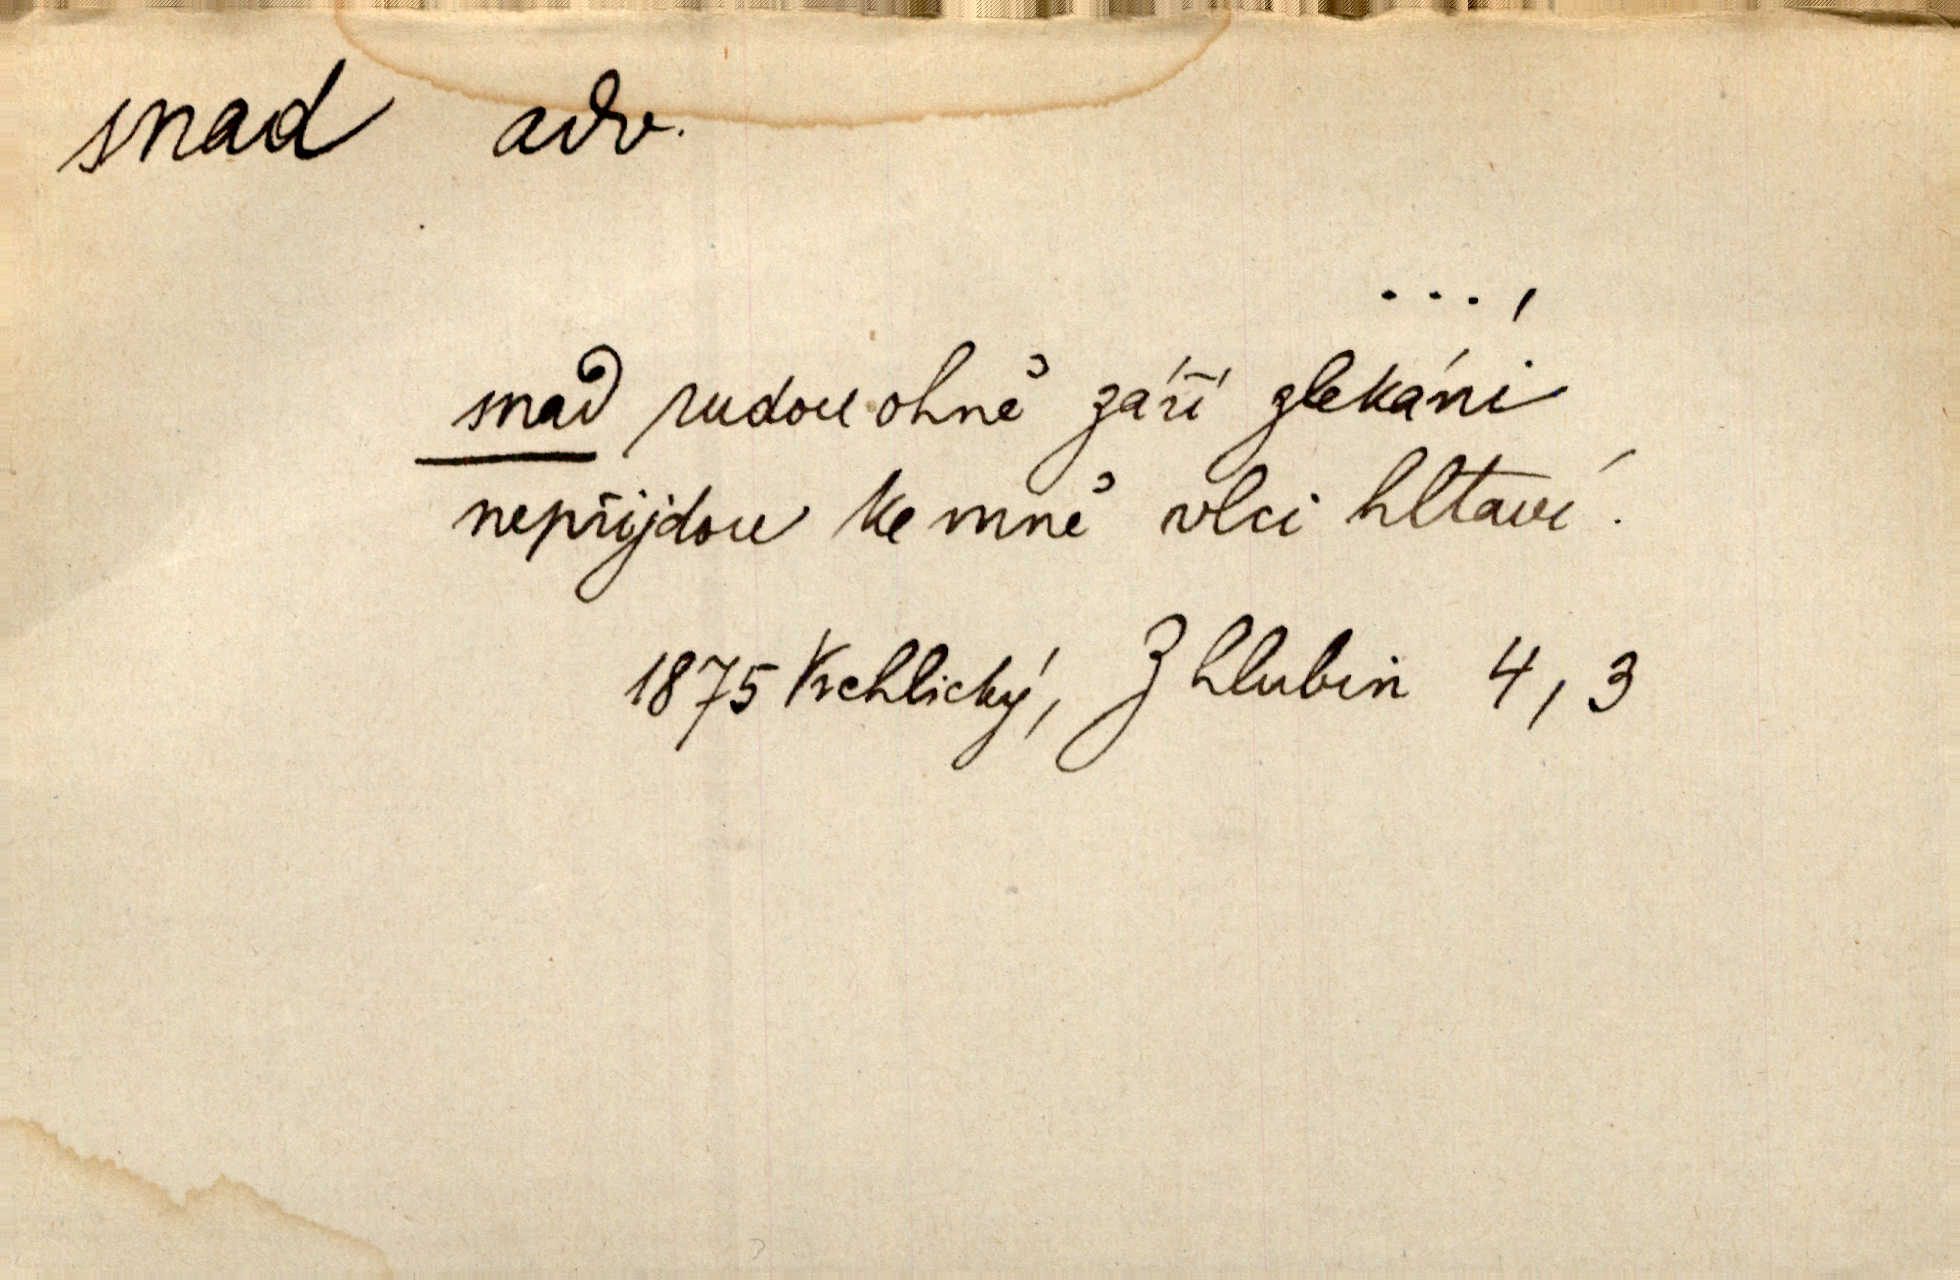 snad adv.
...,
snad rudou ohně září zlekáni
nepřijdou ke mně vlci hltaví.
1875 Vrchlický, Z hlubin 4, 3